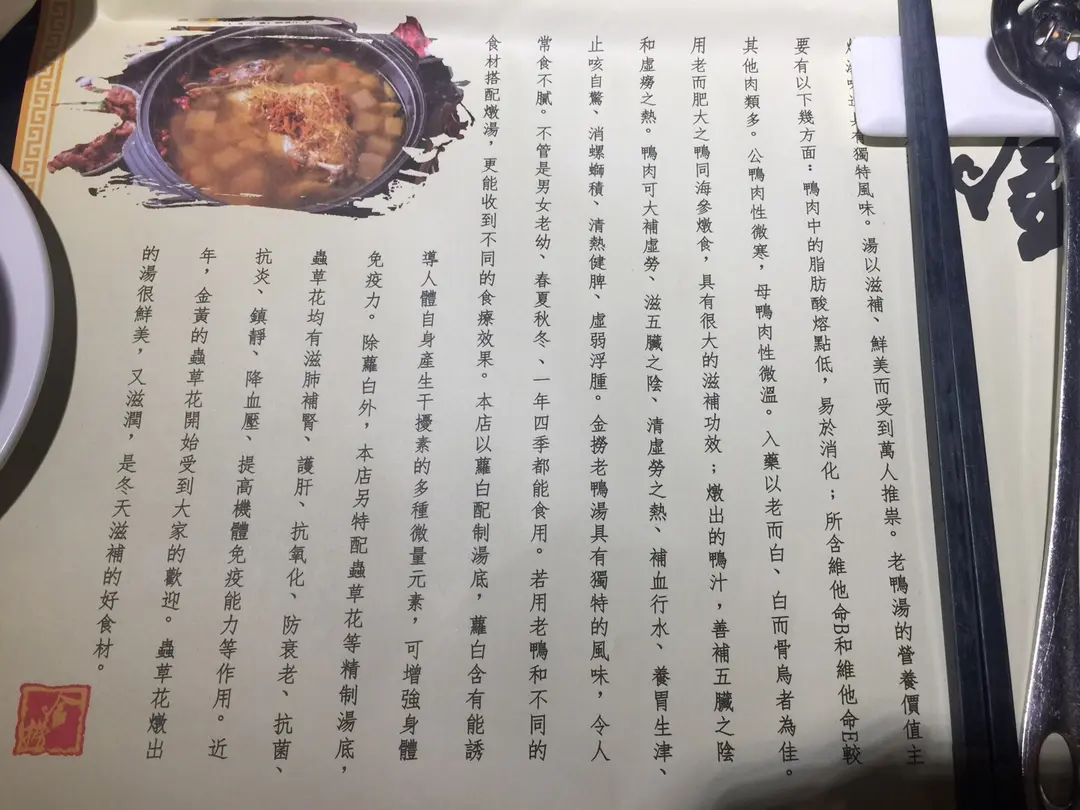 金
獨特風味。湯以滋補、鮮美而受到萬人推崇。老鴨湯的營養價值主
要有以下幾方面：鴨肉中的脂肪酸熔點低，易於消化；所含維他命B和維他命E較
其他肉類多。公鴨肉性微寒，母鴨肉性微溫。入藥以老而白、白而骨烏者為佳。
用老而肥大之鴨同海參燉食，具有很大的滋補功效；燉出的鴨汁，善補五臟之陰
和虛癆之熱。鴨肉可大補虛勞、滋五臟之陰、清虛勞之熱、補血行水、養胃生津、
止咳自驚、消螺螄積、清熱健脾、虛弱浮腫。金撈老鴨湯具有獨特的風味，令人
常食不膩。不管是男女老幼、春夏秋冬、一年四季都能食用。若用老鴨和不同的
食材搭配燉湯，更能收到不同的食療效果。本店以蘿白配制湯底，蘿白含有能誘
導人體自身產生干擾素的多種微量元素，可增強身體
免疫力。除蘿白外，本店另特配蟲草花等精制湯底，
蟲草花均有滋肺補腎、護肝、抗氧化、防衰老、抗菌、
抗炎、鎮靜、降血壓、提高機體免疫能力等作用。近
年，金黃的蟲草花開始受到大家的歡迎。蟲草花燉出
的湯很鮮美，又滋潤，是冬天滋補的好食材。